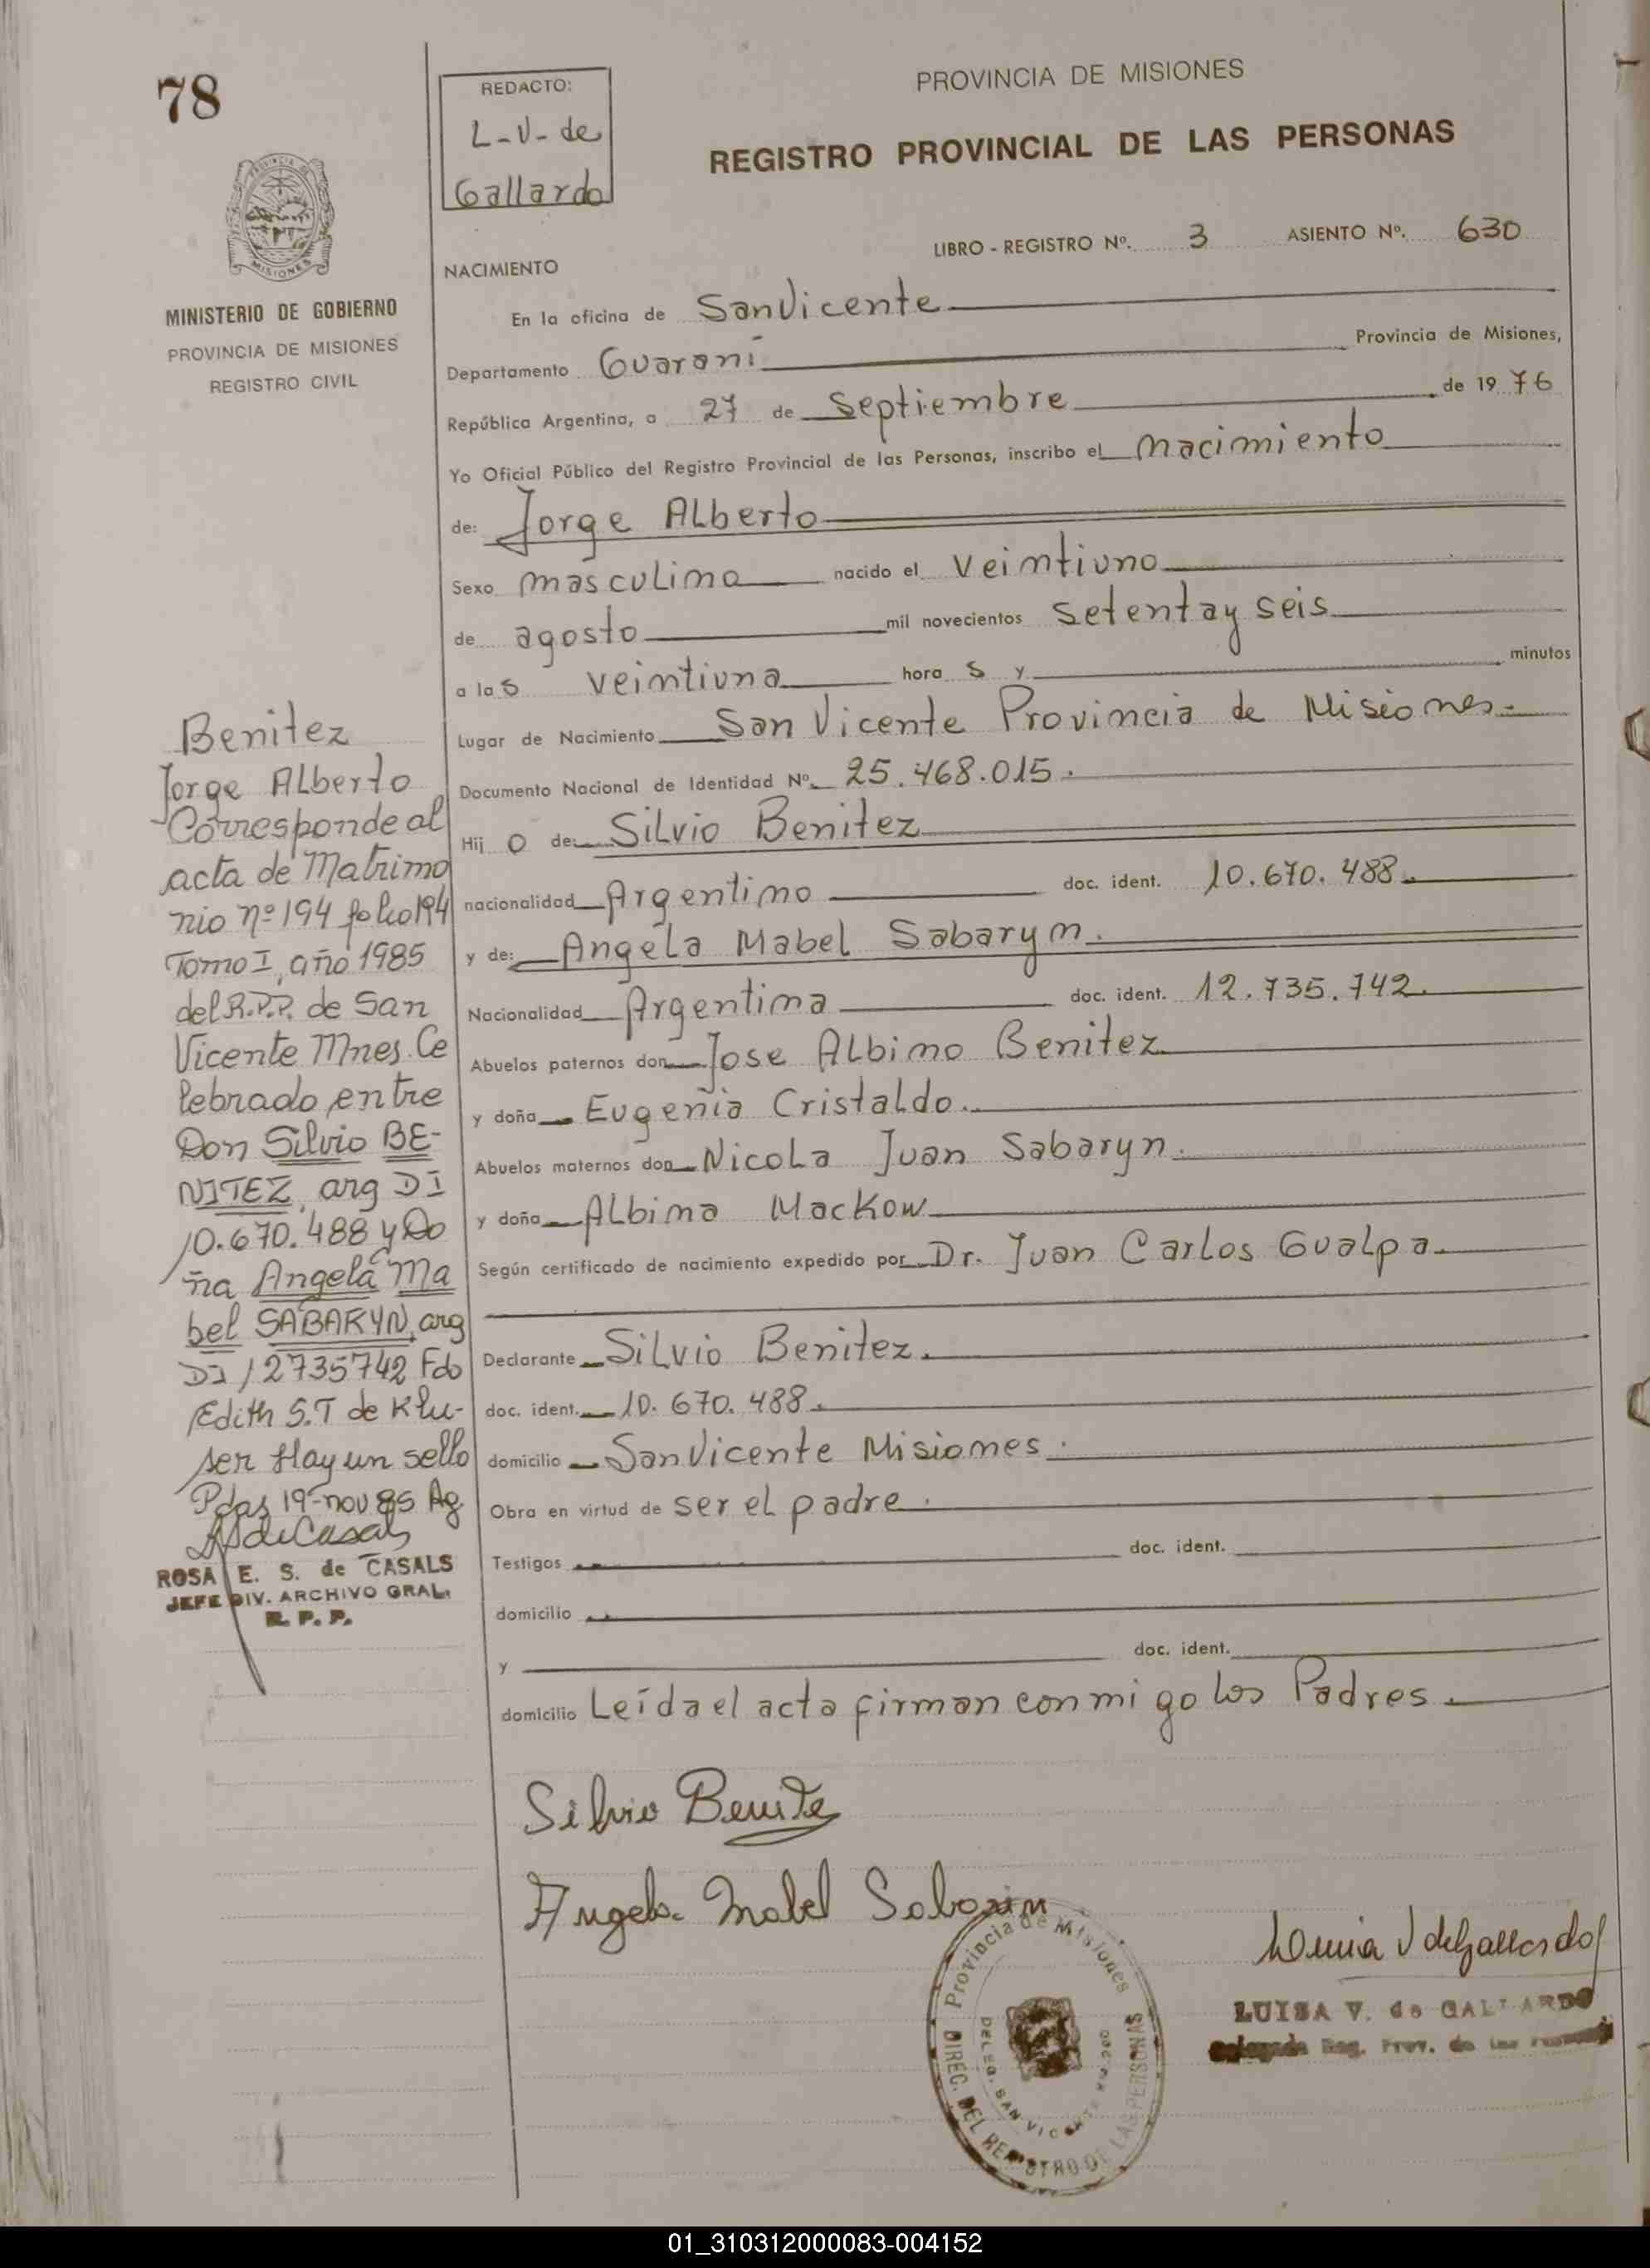 78
REDACTO:
L-V-de
Gallardo
PROVINCIA DE MISIONES
REGISTRO PROVINCIAL DE LAS PERSONAS
LIBRO - REGISTRO Nº. 3 ASIENTO Nº. 630
MISIONES
MINISTERIO DE GOBIERNO
PROVINCIA DE MISIONES
REGISTRO CIVIL
NACIMIENTO
En la oficina de San Vicente
Departamento Guaraní Provincia de Misiones,
República Argentina, a 27 de Septiembre de 19 76
Yo Oficial Público del Registro Provincial de las Personas, inscribo el nacimiento
de: Jorge Alberto
Sexo masculino nacido el veintiuno
de agosto mil novecientos setenta y seis
a las veintiuna hora s y minutos
Lugar de Nacimiento San Vicente Provincia de Misiones.
Documento Nacional de Identidad Nº. 25.468.015.
Hij o de: Silvio Benitez
nacionalidad Argentino doc. ident. 10.670.488.
y de: Angela Mabel Sabaryn.
Nacionalidad Argentina doc. ident. 12.735.742.
Abuelos paternos don Jose Albino Benitez
y doña Eugenia Cristaldo.
Abuelos maternos don Nicola Juan Sabaryn.
y doña Albina Mackow
Según certificado de nacimiento expedido por Dr. Juan Carlos Gualpa.
Declarante Silvio Benitez.
doc. ident. 10.670.488.
domicilio San Vicente Misiones.
Obra en virtud de ser el padre.
Testigos doc. ident.
domicilio
y doc. ident.
domicilio Leída el acta firman conmigo los Padres.
Benitez
Jorge Alberto
Corresponde al
acta de Matrimo
nio nº 194 folio 194
Tomo I, año 1985
del R.P.P. de San
Vicente Mnes. Ce
lebrado entre
Don Silvio BE-
NITEZ, arg DI
10.670.488 y Do
ña Angela Ma
bel SABARYN, arg
DI 12735742 Fdo
Edith S.T de Klu-
ser Hay un sello
Pdas 19-nov 85 Ag
ROSA E. S. de CASALS
JEFE DIV. ARCHIVO GRAL.
R. P. P.
Silvio Benitez
Angela Mabel Sabarin
Provincia de Misiones
DIREC. DEL REGISTRO DE LAS PERSONAS
DELEG. SAN VICENTE
LUISA V. de GALLARDO
Delegada Reg. Prov. de las Personas
01_310312000083-004152